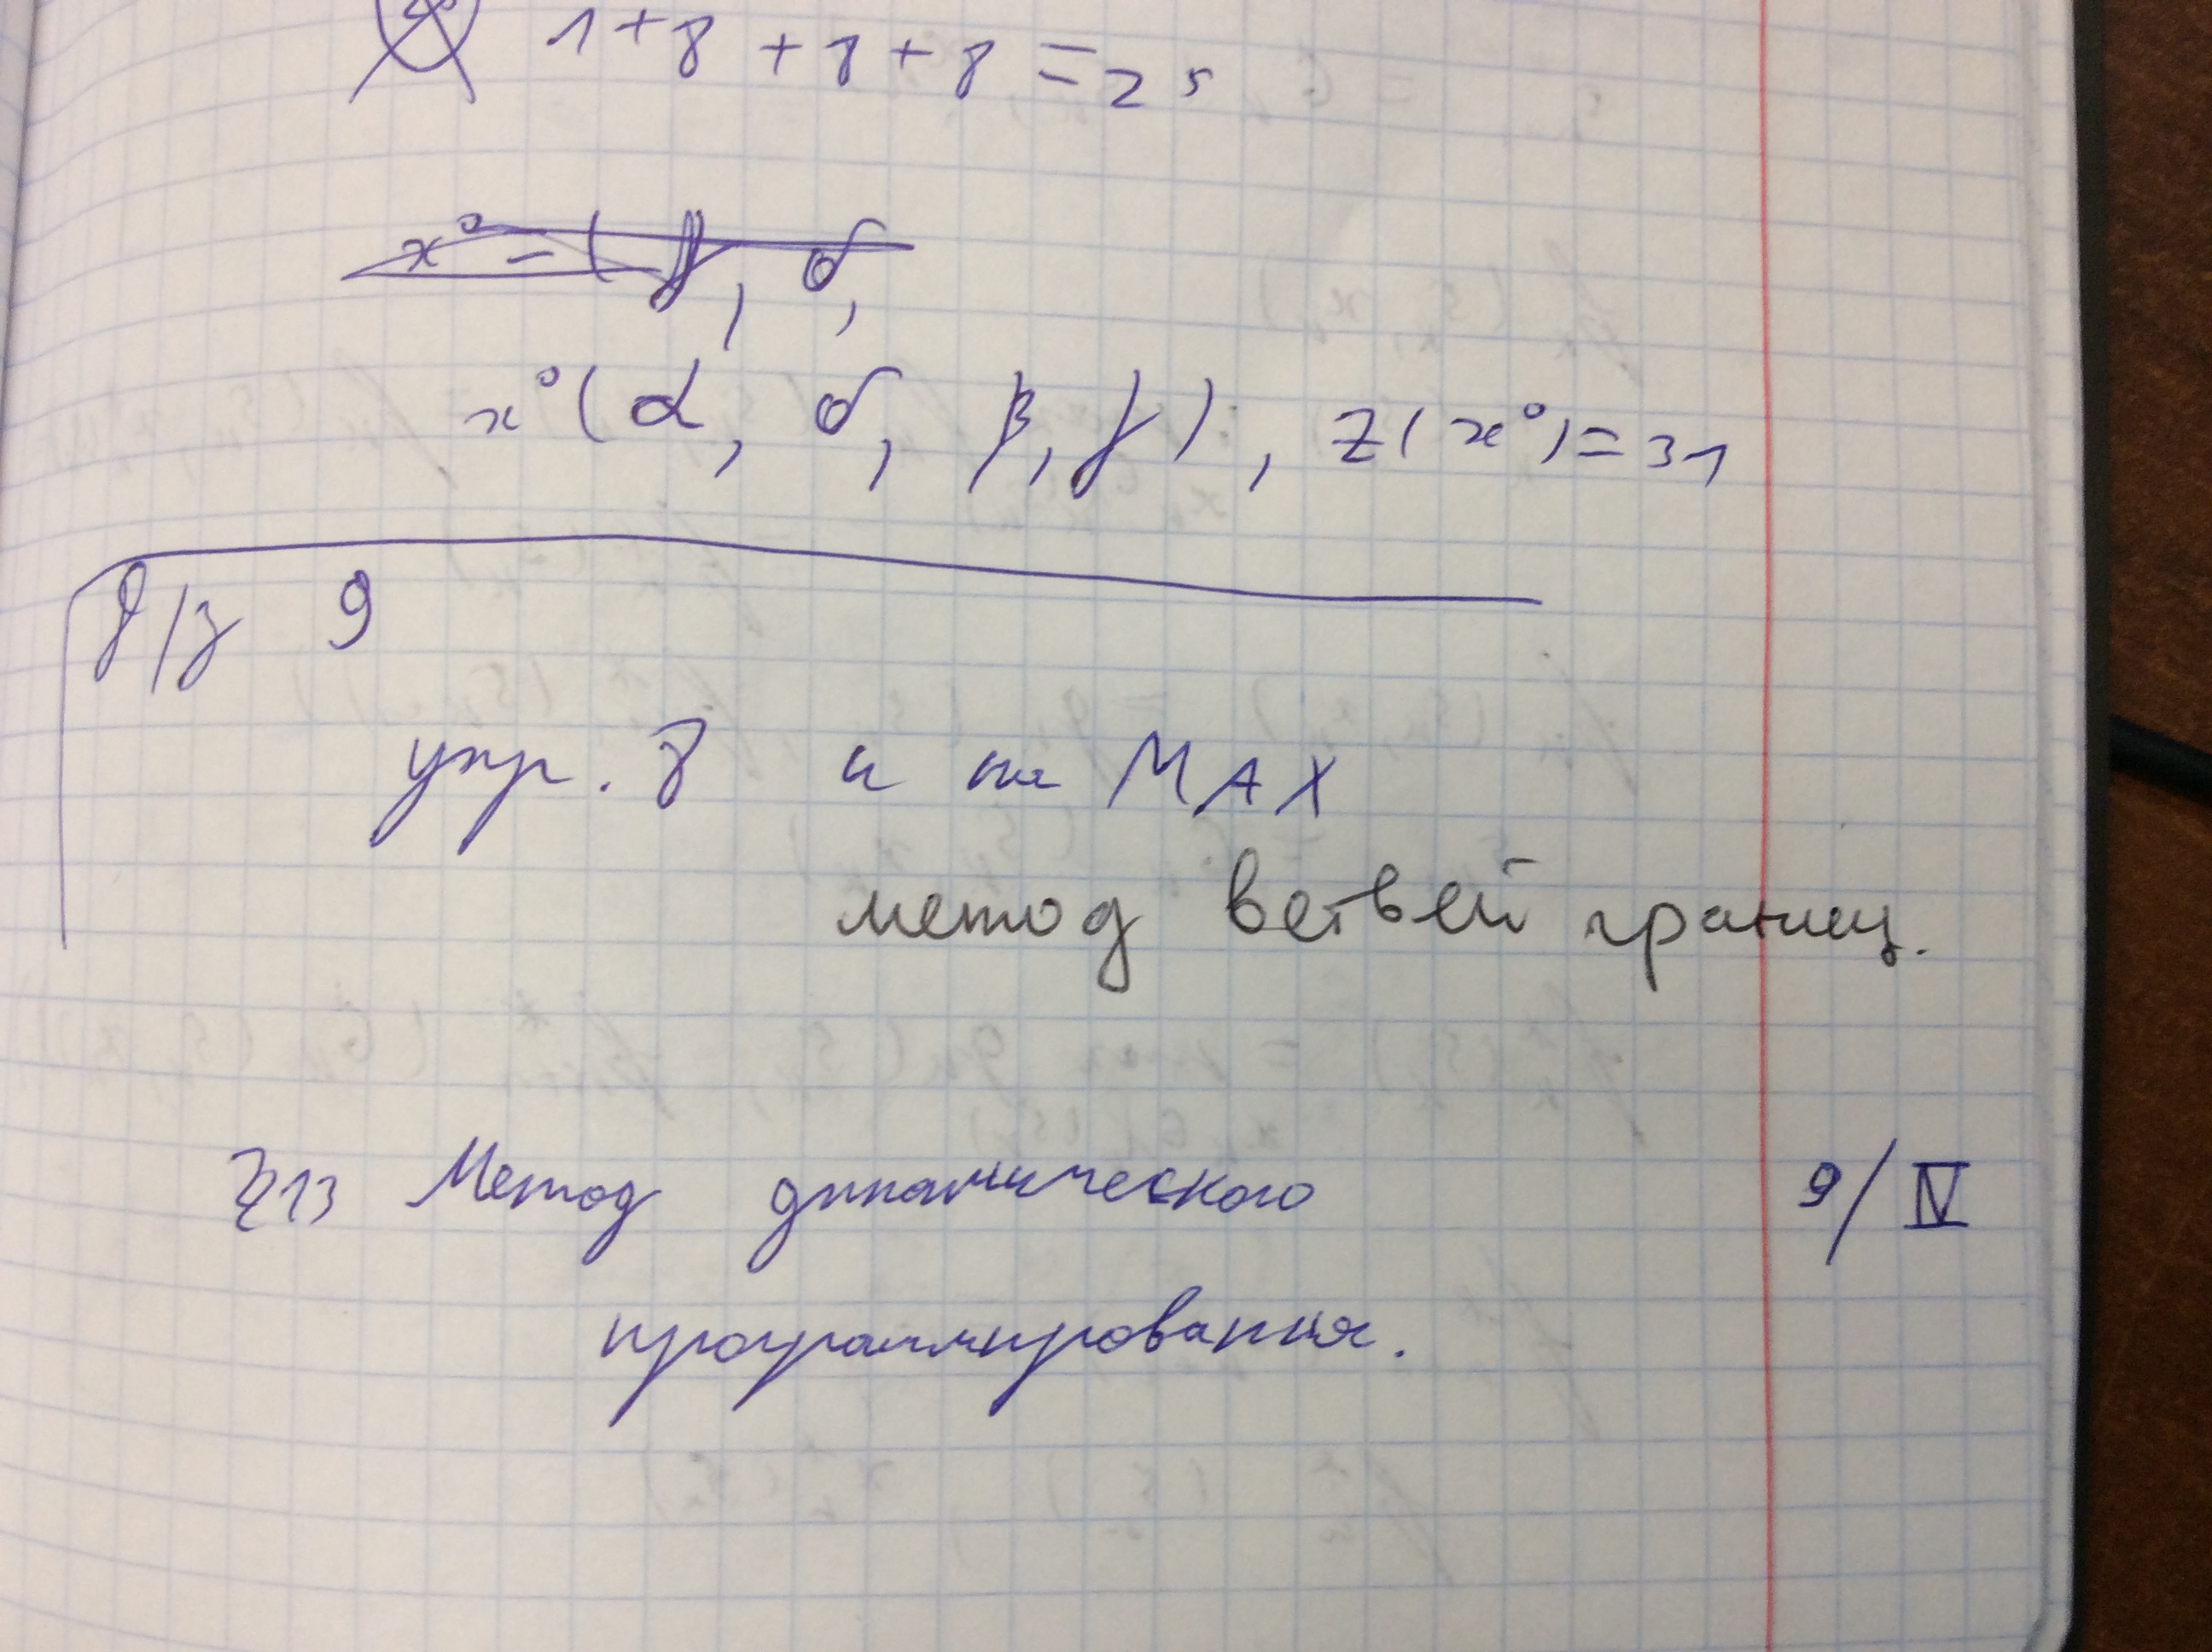 1+8+8+8=25
x°=(γ, δ,
x°(α, δ, β, γ), z(x°)=31
д/з 9
упр. 8 и на MAX
метод ветвей границ.
§13 Метод динамического 9/IV
программирования.